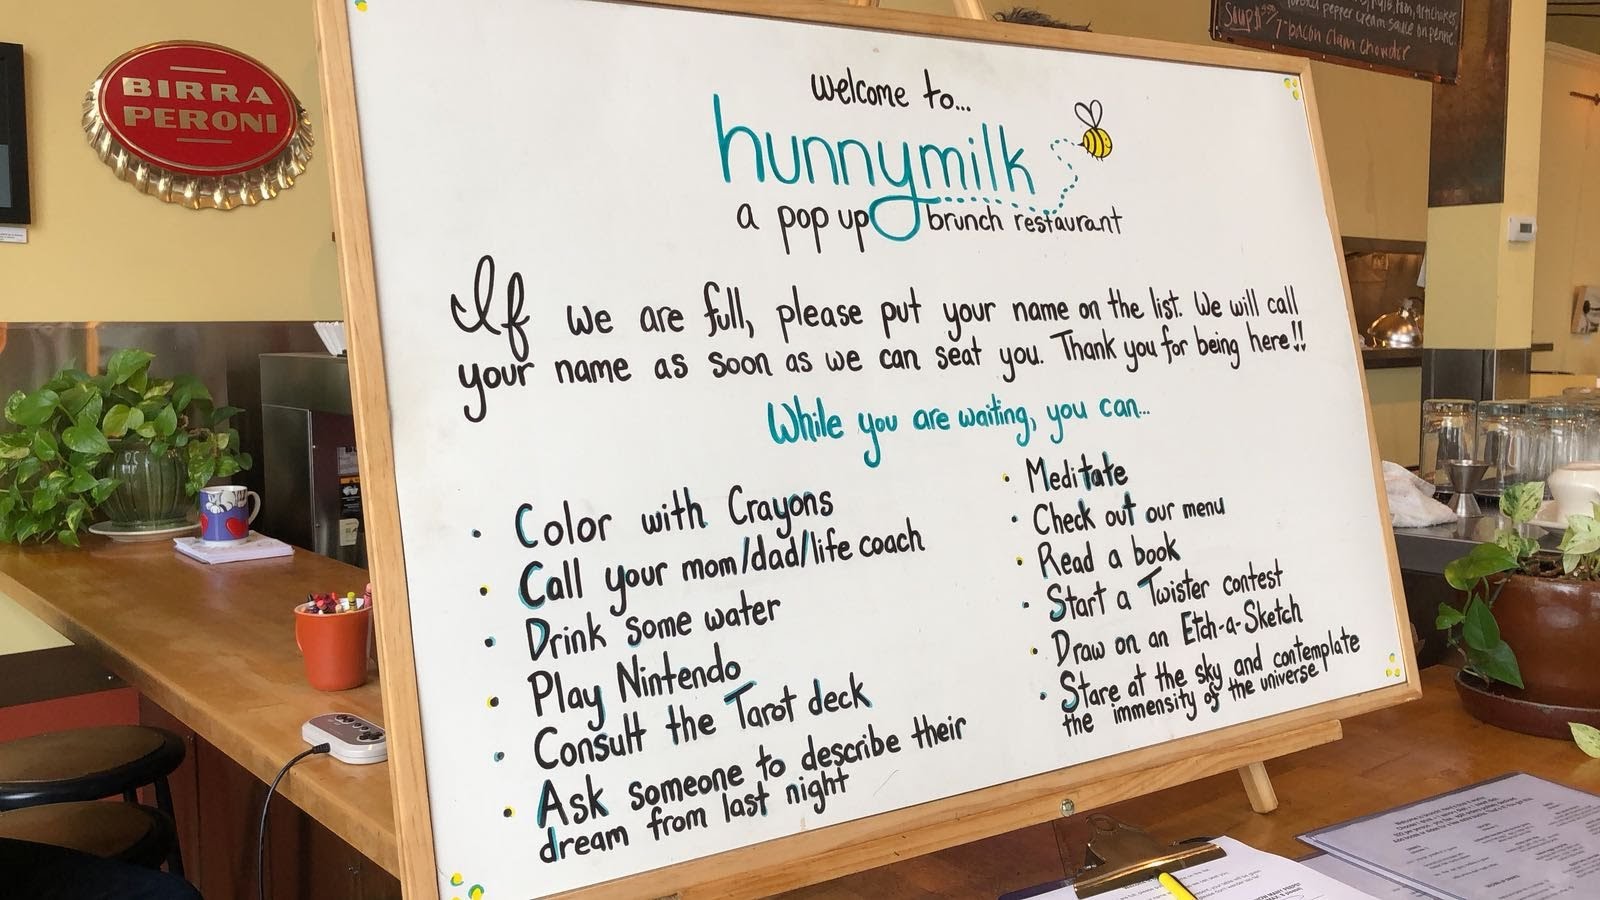 BIRRA
PERONI
Soups
bacon clam chowder
pepper cream sauce on penne
welcome to...
hunnymilk
a pop up brunch restaurant
If we are full, please put your name on the list. We will call
your name as soon as we can seat you. Thank you for being here!!
While you are waiting, you can...
• Color with Crayons
• Call your mom/dad/life coach
• Drink some water
• Play Nintendo
• Consult the Tarot deck
• Ask someone to describe their
dream from last night
• Meditate
• Check out our menu
• Read a book
• Start a Twister contest
• Draw on an Etch-a-Sketch
• Stare at the sky and contemplate
the immensity of the universe